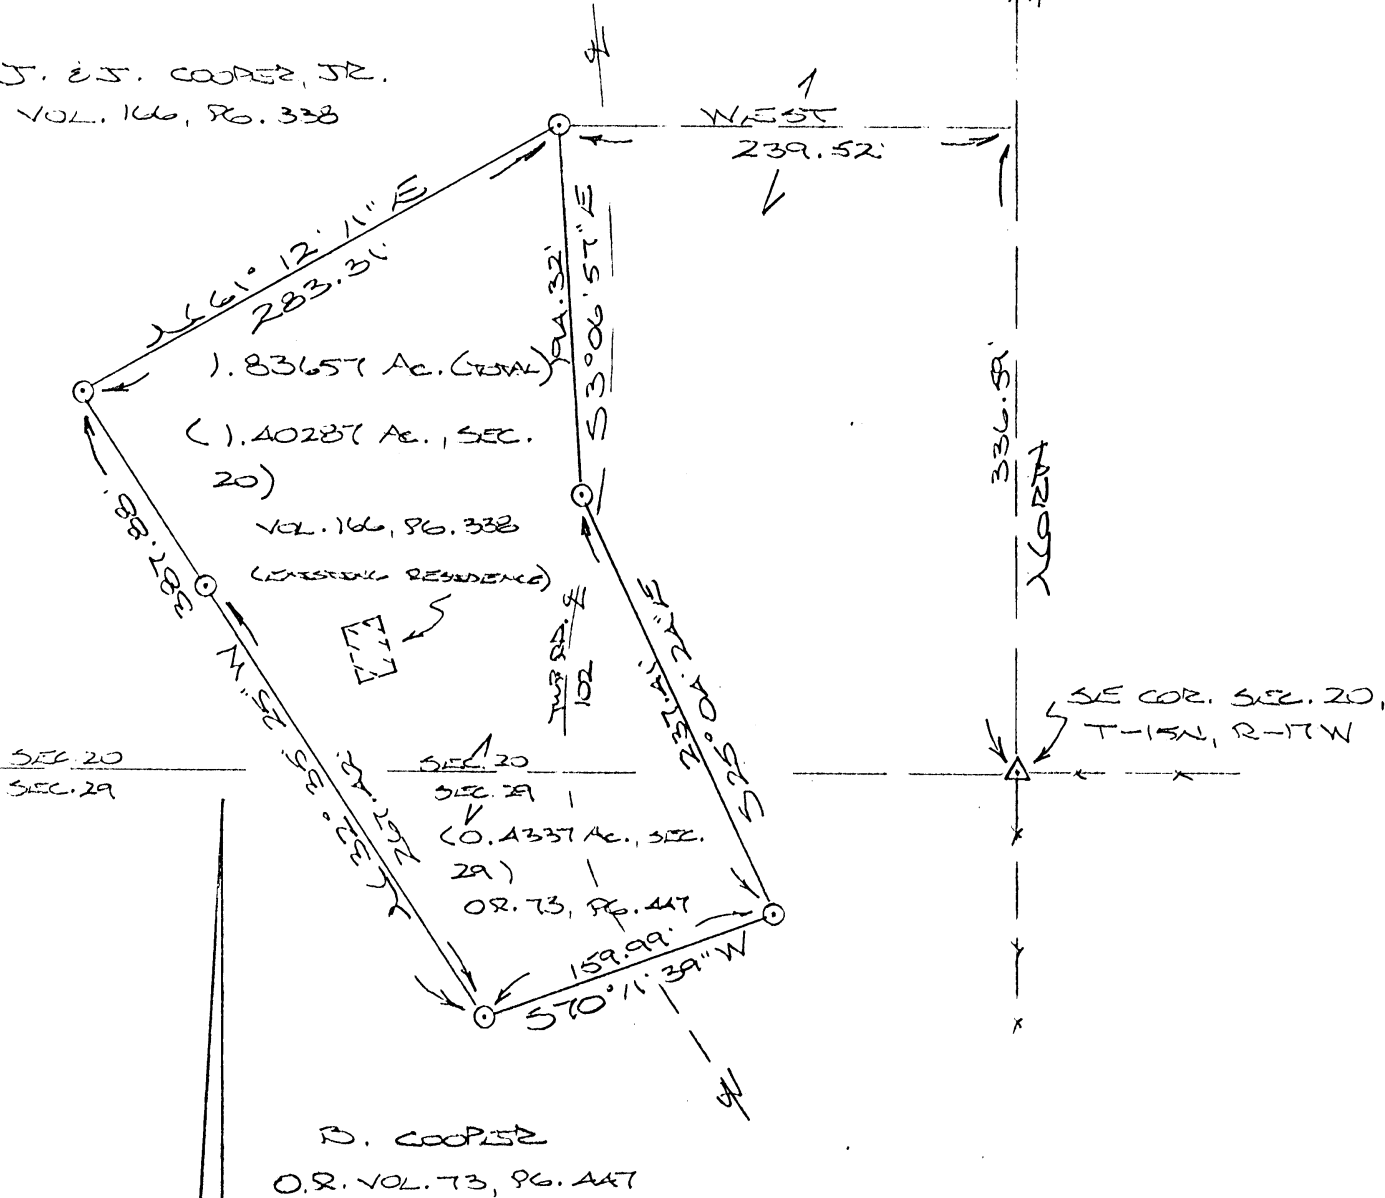 J. & J. COOPER, JR.
VOL. 166, PG. 338
℄
WEST
239.52'
N 61° 12' 11" E
283.31'
194.32'
S 3° 06' 57" E
1.83657 AC. (TOTAL)
(1.40287 AC., SEC.
20)
VOL. 166, PG. 338
(EXISTING RESIDENCE)
336.59'
NORTH
387.88'
TWP. RD. ℄
102
237.41'
S 25° 04' 24" E
N 32° 33' 25" W
267.42'
SE COR. SEC. 20,
T-15N, R-17W
SEC. 20
SEC. 29
SEC. 20
SEC. 29
(0.4337 AC., SEC.
29)
OR. 73, PG. 447
159.99'
S 70° 11' 39" W
℄
B. COOPER
O.R. VOL. 73, PG. 447